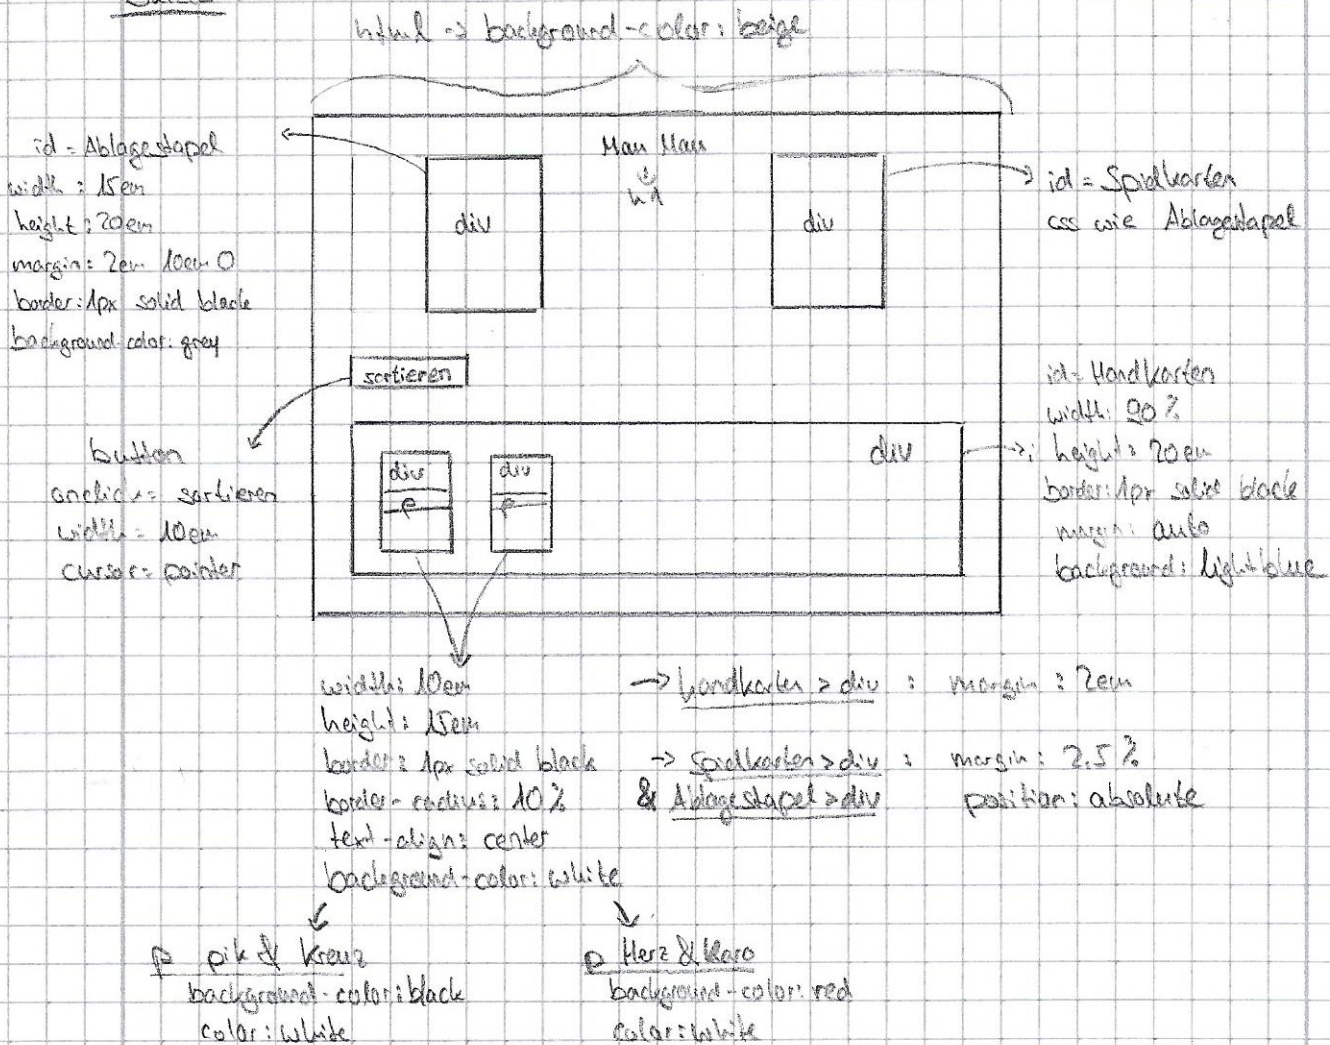 html -> background-color: beige
Mau Mau
h1
id = Ablagestapel
width : 15em
height : 20em
margin: 2em 10em 0
border: 1px solid black
background-color: grey
div
div
id = Spielkarten
css wie Ablagestapel
sortieren
button
onclick = sortieren
width = 10em
cursor = pointer
div
p
div
p
div
id = Handkarten
width: 90%
height: 20em
border: 1px solid black
margin: auto
background: lightblue
width: 10em
height: 15em
border: 1px solid black
border-radius: 10%
text-align: center
background-color: white
-> handkarten > div : margin : 2em
-> Spielkarten > div : margin : 2.5%
& Ablagestapel > div position: absolute
p pik & Kreuz
background-color: black
color: white
p Herz & Karo
background-color: red
color: white